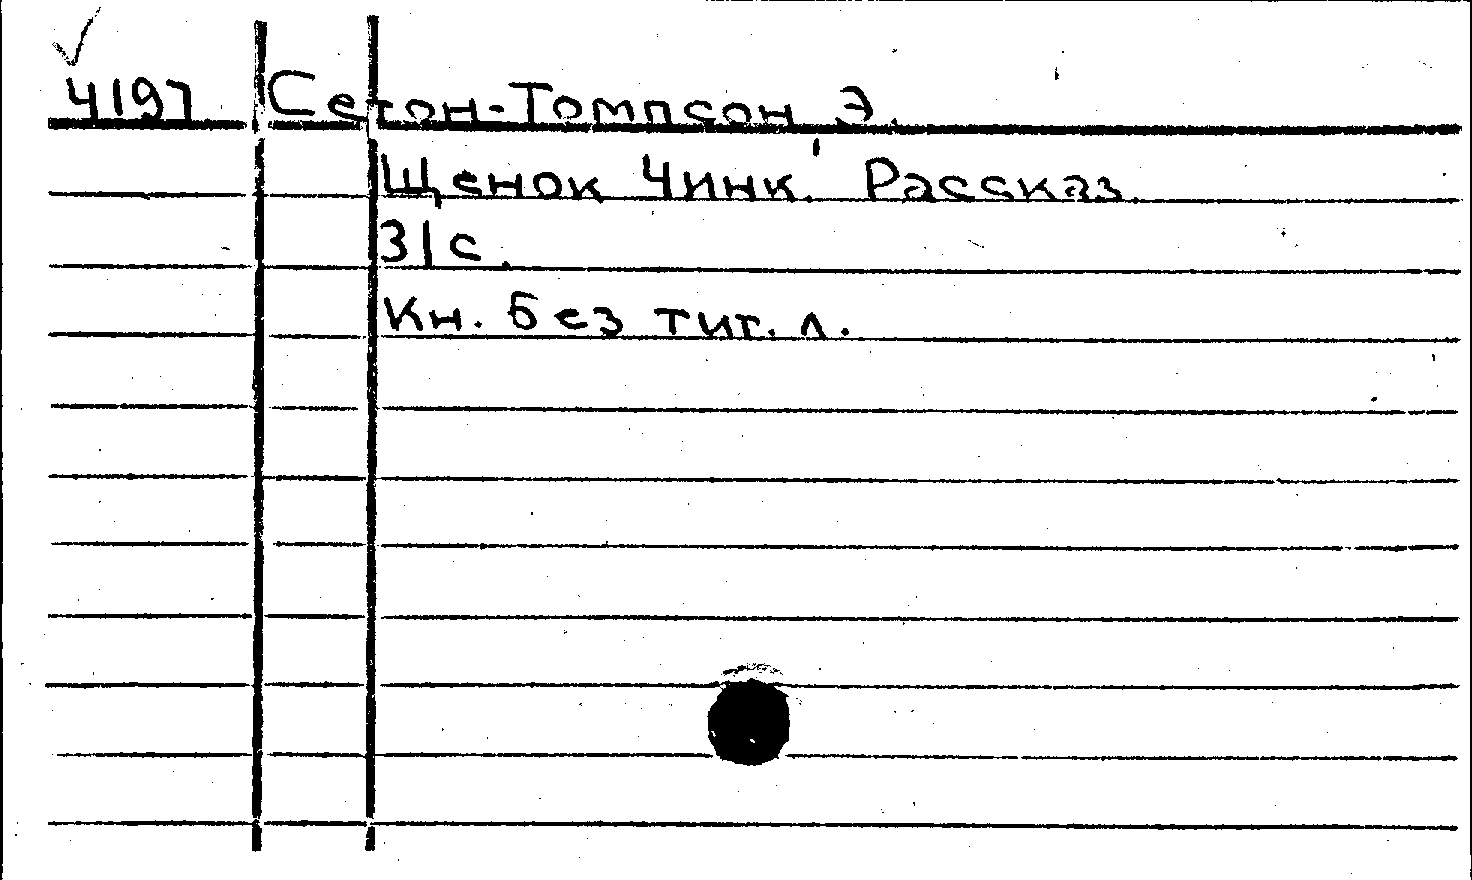 4197 Сетон-Томпсон Э.
Щенок Чинк. Рассказ
31с.
Кн. без тит. л.